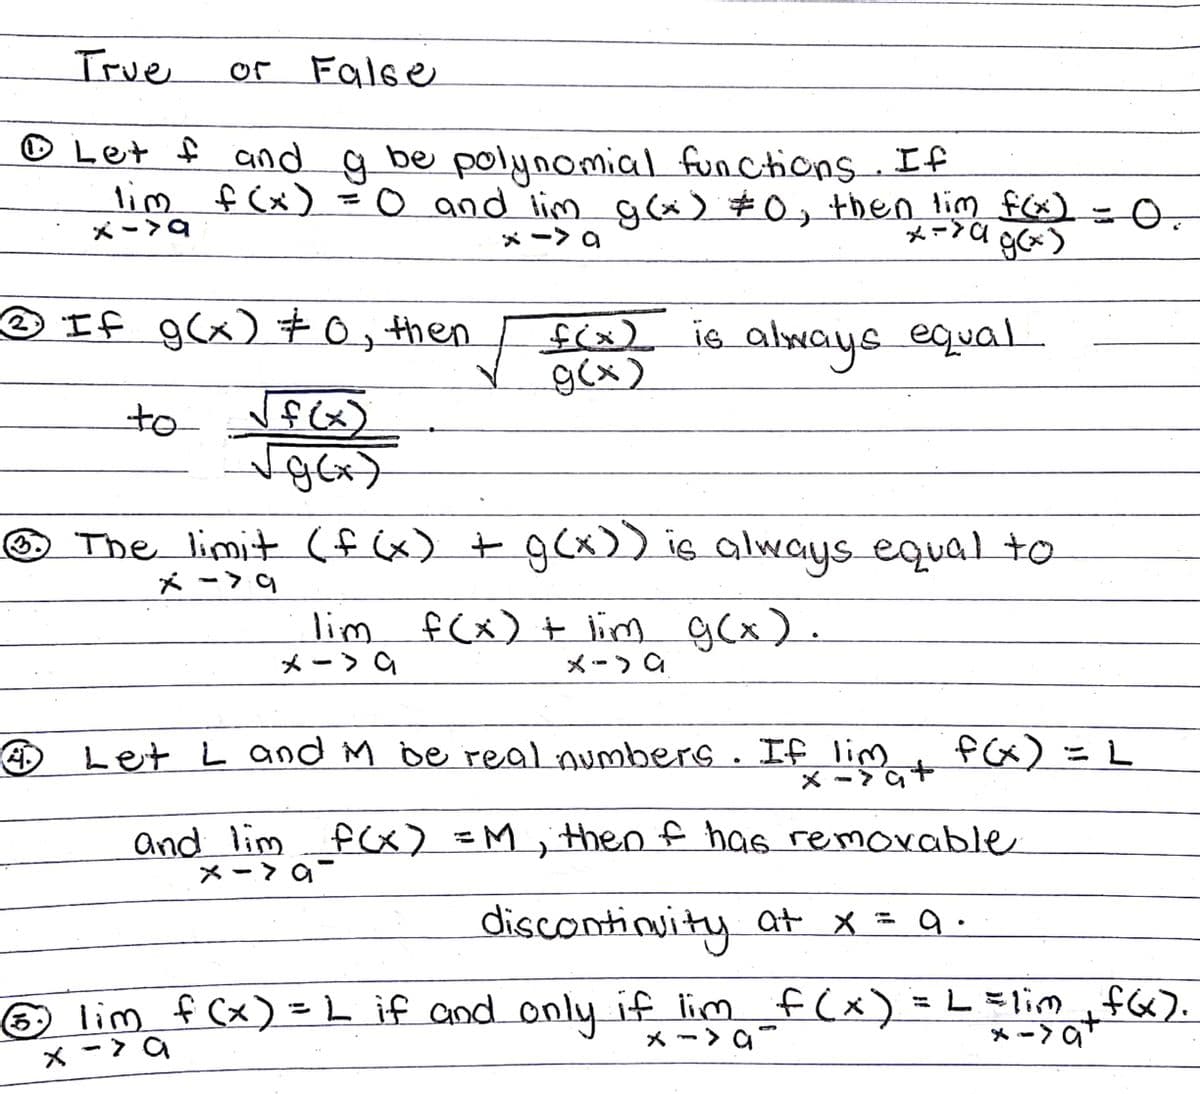 True or False
1. Let f and g be polynomial functions. If
lim f(x) = 0 and lim g(x) ≠ 0, then lim f(x) = 0.
x->a x->a x->a g(x)
2. If g(x) ≠ 0, then √ f(x) is always equal
g(x)
to √f(x) .
√g(x)
3. The limit (f(x) + g(x)) is always equal to
x->a
lim f(x) + lim g(x).
x->a x->a
4. Let L and M be real numbers. If lim f(x) = L
x->a+
and lim f(x) = M, then f has removable
x->a-
discontinuity at x = a.
5. lim f(x) = L if and only if lim f(x) = L = lim f(x).
x->a x->a- x->a+